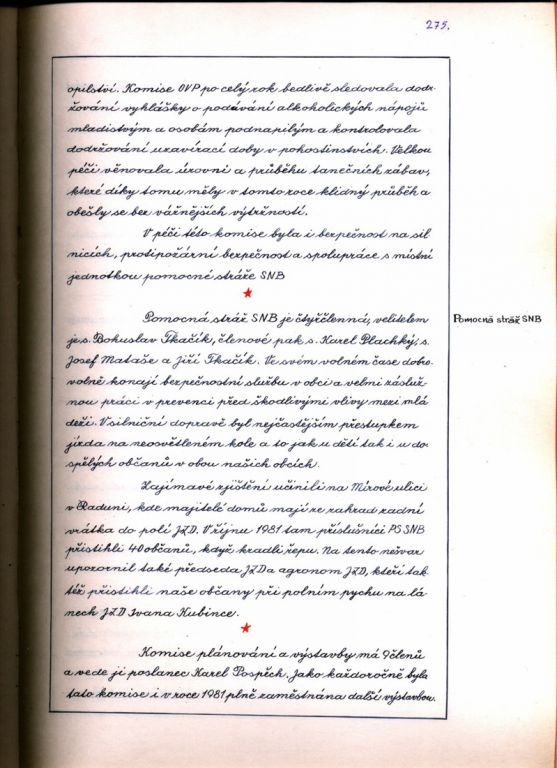 275.
opilství. Komise OVP po celý rok bedlivě sledovala dodr-
žování vyhlášky o podávání alkoholických nápojů
mladistvým a osobám podnapilým a kontrolovala
dodržování uzavírací doby v pohostinstvích. Velkou
péči věnovala úrovni a průběhu tanečních zábav,
které díky tomu měly v tomto roce klidný průběh a
obešly se bez vážnějších výtržností.
V péči této komise byla i bezpečnost na sil-
nicích, protipožární bezpečnost a spolupráce s místní
jednotkou pomocné stráže SNB
Pomocná stráž SNB je čtyřčlenná, velitelem
je s. Bohuslav Tkačík, členové pak s. Karel Plachký, s.
Josef Mataše a Jiří Tkačík. Ve svém volném čase dobro-
volně konají bezpečnostní službu v obci a velmi záslуž-
nou práci v prevenci před škodlivými vlivy mezi mlá
deží. V silniční dopravě byl nejčastějším přestupkem
jízda na neosvětleném kole a to jak u dětí tak i u do-
spělých občanů v obou našich obcích.
Zajímavé zjištění učinili na Mírové ulici
v Raduni, kde majitelé domů mají ze zahrad zadní
vrátka do polí JZD. V říjnu 1981 tam příslušníci PS SNB
přistihli 40 občanů, když kradli řepu. Na tento nešvar
upozornil také předseda JZD a agronom JZD, kteří tak-
též přistihli naše občany při polním pychu na lá-
nech JZD Ivana Kubince.
Komise plánování a výstavby má 9 členů
a vede ji poslanec Karel Pospěch. Jako každoročně byla
tato komise i v roce 1981 plně zaměstnána další výstavbou.
Pomocná stráž SNB